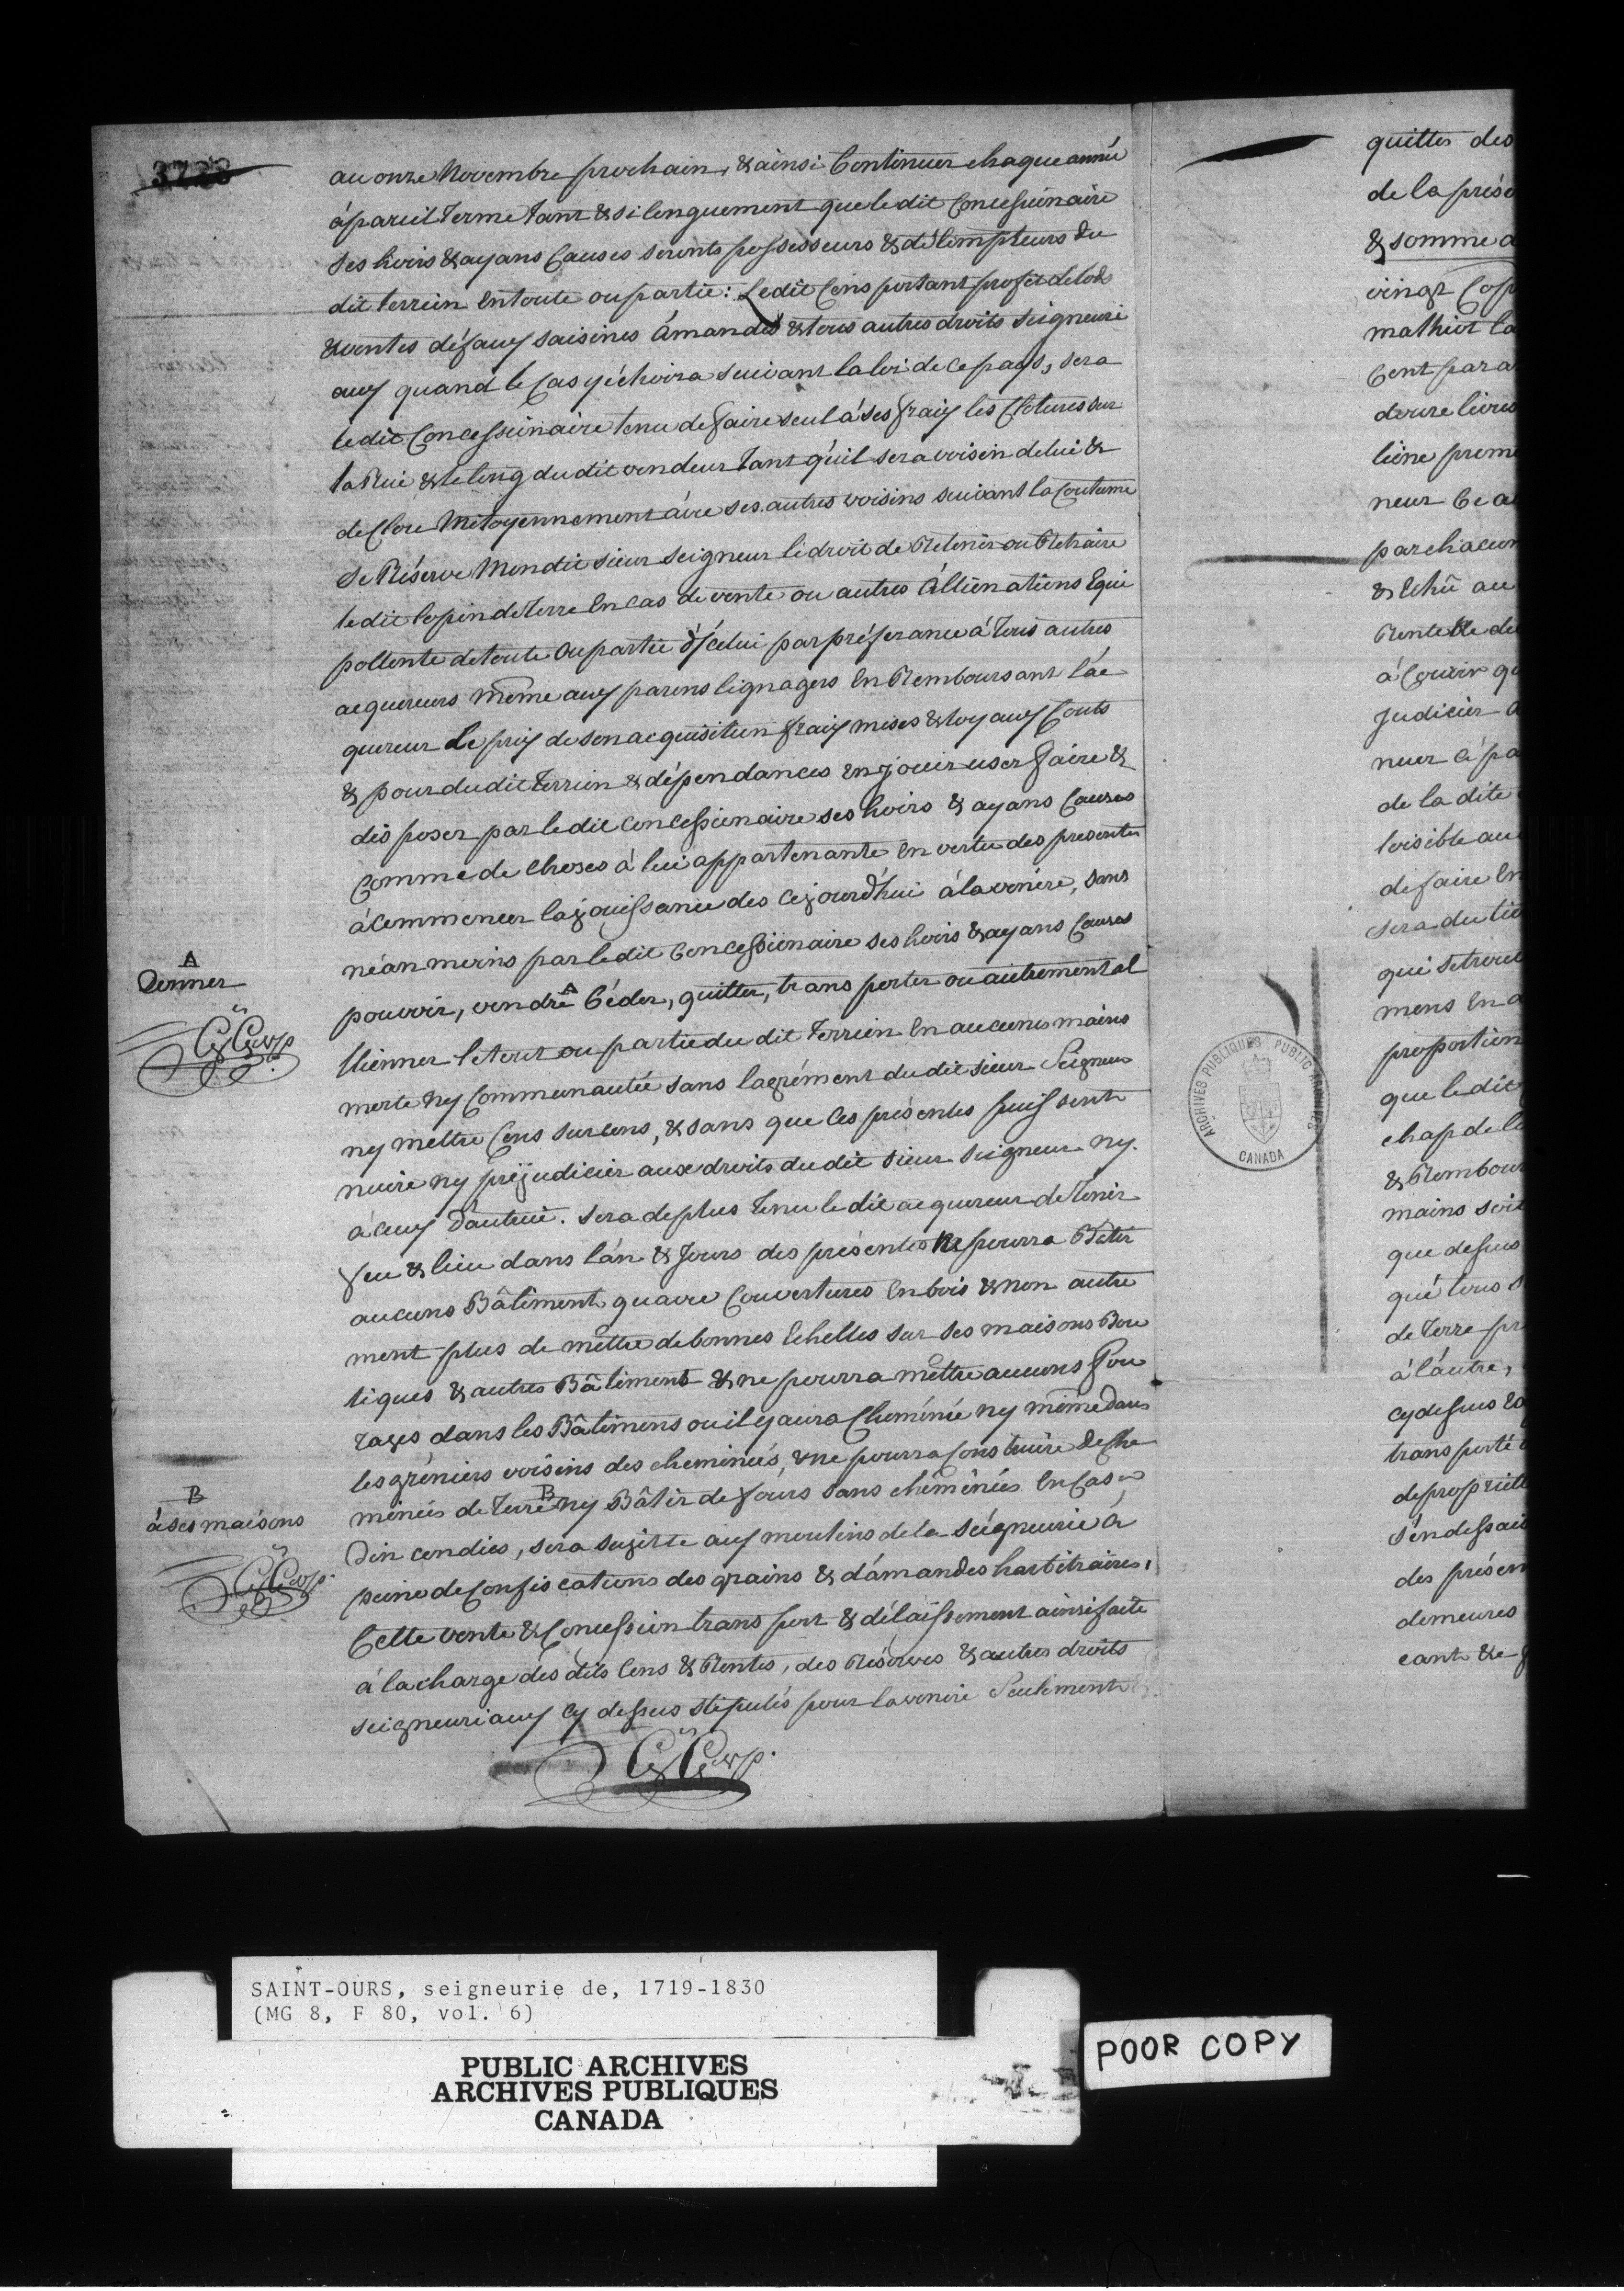 3728
au onze Novembre prochain, & ainsi Continuer chaque année
à pareil Terme tant & si longuement que le dit Concessionaire
ses hoirs & ayans Causes seronts possesseurs & détempteurs du
dit terrein en toute ou partie: Le dit Cens portant profit de lods
& ventes défaux saisines amandes & tous autres droits seigneuri
aux quand le Cas y échoira suivant la loi de ce pays, sera
le dit Concessionaire tenu de faire seul à ses fraix les Clotures sur
la Rüe & le long du dit vendeur tant qu'il sera voisin de lui &
de Clore Mitoyennement avec ses autres voisins suivant la Coutume
Se Réserve Mondit sieur seigneur le droit de Retenir ou Retraire
le dit lopin de Terre En cas de vente ou autres Alliénations Equi
pollente de toute ou partie d'Icelui par préferance à Tous autres
acquereurs même aux parens lignagers En Remboursant l'ac
quereur le prix de son acquisition fraix mises & loyaux Couts
& pour du dit Terrein & dépendances en jouir user faire &
disposer par le dit concessionaire ses hoirs & ayans Causes
Comme de choses à lui appartenante En vertu des presentes
à Commencer la jouissance des cejourd'hui à l'avenire, sans
néanmoins par le dit Concessionaire ses hoirs & ayans Causes
pouvoir, vendre A Céder, quitter, transporter ou autrement al
liénner le tout ou partie du dit Terrein En aucunes mains
morte ny Communautée sans l'agrément du dit sieur Seigneur
ny mettre Cens sur cens, & sans que ces présentes puissent
nuire ny préjudicier aux droits du dit sieur seigneur ny
à ceux D'autrui. sera de plus tenu le dit acquereur de Tenir
feu & lieu dans l'an & Jours des présentes Ne pourra Bâtir
aucuns Bâtiment qu'avec Couvertures En bois & non autre
ment plus de mettre de bonnes Echelles sur ses maisons Bou
tiques & autres Bâtiments & ne pourra mettre aucuns fou
rages dans les Bâtimens ou il y aura Cheminée ny même dans
les greniers voisins des cheminées, & ne pourra construire de che
minées de Terre B ny Bâtir de fours sans cheminées En Cas
D'incendies, sera sujette aux moulins de la Seigneurie à
peine de Confiscations des grains & d'amandes harbitraires,
Cette vente & Concession transport & délaissement ainsi faite
à la charge des dits Cens & Rentes, des Réserves & autres droits
seigneuriaux cy dessus stipulés pour l'avenire Seulement &
A
Donner
B
à ses maisons
quitter des
de la prése
& somme d
vingt Cop
mathiot la
Cent para
douze livres
liéne prem
neur Ce a
par chacun
& Echû au
Rente Ele de
à Courir qu
judicier a
nuer à pa
de la dite
loisible au
de faire En
sera du tie
qui se trouv
mens En a
proportion
que le dit
chap de l
& Rembour
mains soit
que dessus
que tous s
de terre pr
à l'autre,
cy dessus
transporté
de propriett
s'en dessai
des présen
demeures
cant &
ARCHIVES PUBLIQUES PUBLIC ARCHIVES
CANADA
SAINT-OURS, seigneurie de, 1719-1830
(MG 8, F 80, vol. 6)
PUBLIC ARCHIVES
ARCHIVES PUBLIQUES
CANADA
POOR COPY